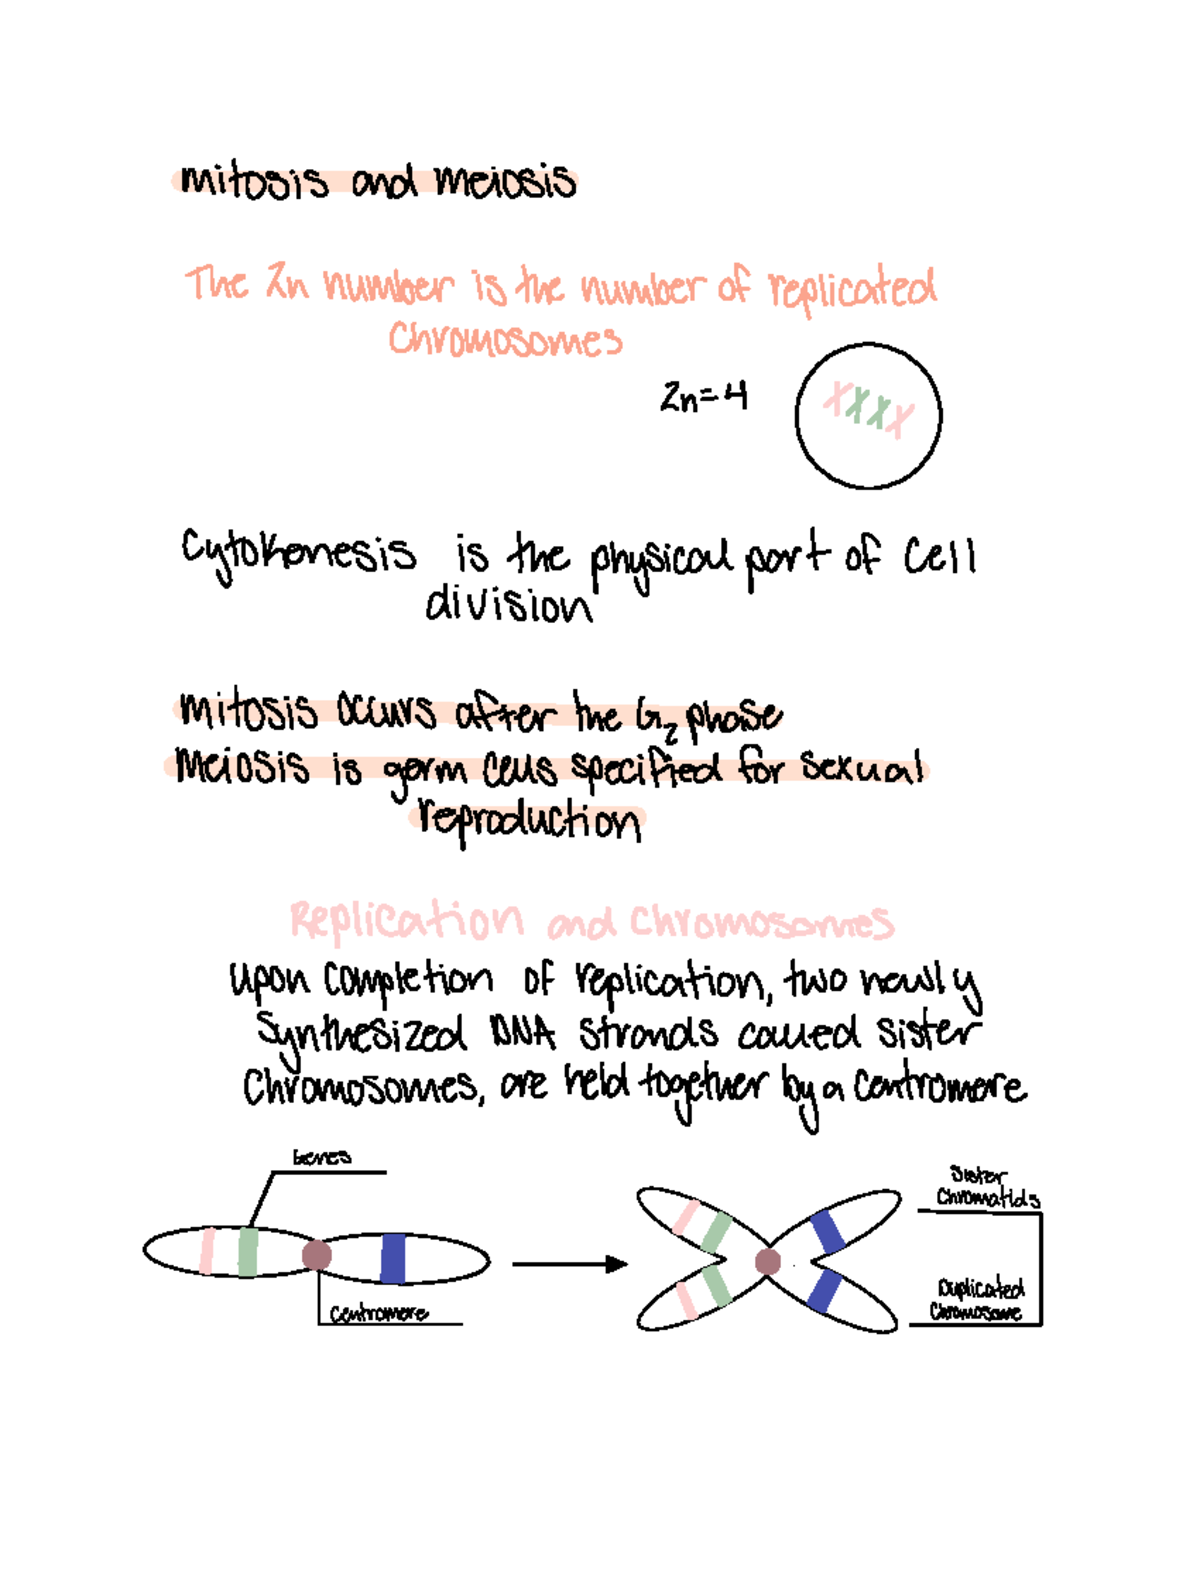 mitosis and meiosis
The 2n number is the number of replicated
Chromosomes
2n=4
Cytokenesis is the physical part of cell
division
mitosis occurs after the G2 phase
Meiosis is germ cells specified for sexual
reproduction
Replication and Chromosomes
upon completion of replication, two newly
synthesized DNA strands called sister
Chromosomes, are held together by a centromere
Genes
Sister
Chromatids
Duplicated
Chromosome
Centromere